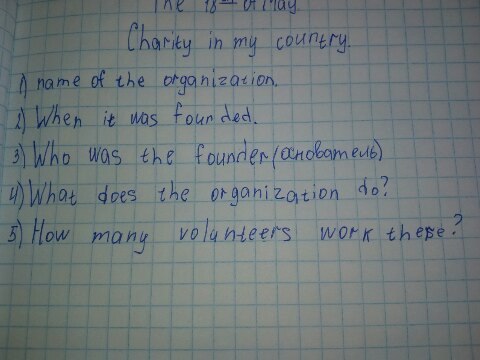 The 18th of May
Charity in my country.
1) name of the organization.
2) When it was founded.
3) Who was the founder (основатель)
4) What does the organization do?
5) How many volunteers work there?